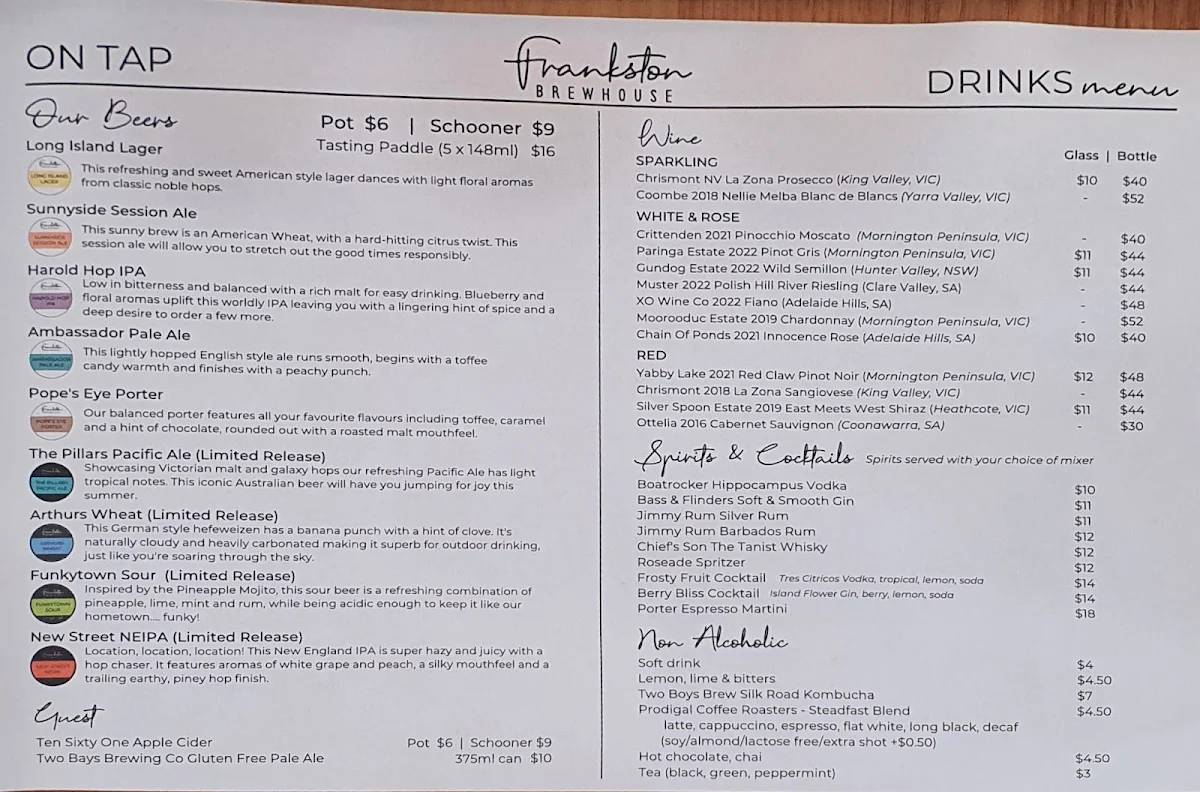 ON TAP
Frankston
BREWHOUSE
DRINKS menu
Our Beers
Pot $6 | Schooner $9
Tasting Paddle (5 x 148ml) $16
Long Island Lager
LONG ISLAND
LAGER
This refreshing and sweet American style lager dances with light floral aromas
from classic noble hops.
Sunnyside Session Ale
SUNNYSIDE
SESSION ALE
This sunny brew is an American Wheat, with a hard-hitting citrus twist. This
session ale will allow you to stretch out the good times responsibly.
Harold Hop IPA
HAROLD HOP
IPA
Low in bitterness and balanced with a rich malt for easy drinking. Blueberry and
floral aromas uplift this worldly IPA leaving you with a lingering hint of spice and a
deep desire to order a few more.
Ambassador Pale Ale
AMBASSADOR
PALE ALE
This lightly hopped English style ale runs smooth, begins with a toffee
candy warmth and finishes with a peachy punch.
Pope's Eye Porter
POPE'S EYE
PORTER
Our balanced porter features all your favourite flavours including toffee, caramel
and a hint of chocolate, rounded out with a roasted malt mouthfeel.
The Pillars Pacific Ale (Limited Release)
THE PILLARS
PACIFIC ALE
Showcasing Victorian malt and galaxy hops our refreshing Pacific Ale has light
tropical notes. This iconic Australian beer will have you jumping for joy this
summer.
Arthurs Wheat (Limited Release)
WHEAT
This German style hefeweizen has a banana punch with a hint of clove. It's
naturally cloudy and heavily carbonated making it superb for outdoor drinking,
just like you're soaring through the sky.
Funkytown Sour (Limited Release)
FUNKYTOWN
SOUR
Inspired by the Pineapple Mojito, this sour beer is a refreshing combination of
pineapple, lime, mint and rum, while being acidic enough to keep it like our
hometown.... funky!
New Street NEIPA (Limited Release)
NEW STREET
NEIPA
Location, location, location! This New England IPA is super hazy and juicy with a
hop chaser. It features aromas of white grape and peach, a silky mouthfeel and a
trailing earthy, piney hop finish.
Guest
Ten Sixty One Apple Cider Pot $6 | Schooner $9
Two Bays Brewing Co Gluten Free Pale Ale 375ml can $10
Wine
Glass | Bottle
SPARKLING
Chrismont NV La Zona Prosecco (King Valley, VIC) $10 $40
Coombe 2018 Nellie Melba Blanc de Blancs (Yarra Valley, VIC) - $52
WHITE & ROSE
Crittenden 2021 Pinocchio Moscato (Mornington Peninsula, VIC) - $40
Paringa Estate 2022 Pinot Gris (Mornington Peninsula, VIC) $11 $44
Gundog Estate 2022 Wild Semillon (Hunter Valley, NSW) $11 $44
Muster 2022 Polish Hill River Riesling (Clare Valley, SA) - $44
XO Wine Co 2022 Fiano (Adelaide Hills, SA) - $48
Moorooduc Estate 2019 Chardonnay (Mornington Peninsula, VIC) - $52
Chain Of Ponds 2021 Innocence Rose (Adelaide Hills, SA) $10 $40
RED
Yabby Lake 2021 Red Claw Pinot Noir (Mornington Peninsula, VIC) $12 $48
Chrismont 2018 La Zona Sangiovese (King Valley, VIC) - $44
Silver Spoon Estate 2019 East Meets West Shiraz (Heathcote, VIC) $11 $44
Ottelia 2016 Cabernet Sauvignon (Coonawarra, SA) - $30
Spirits & Cocktails Spirits served with your choice of mixer
Boatrocker Hippocampus Vodka $10
Bass & Flinders Soft & Smooth Gin $11
Jimmy Rum Silver Rum $11
Jimmy Rum Barbados Rum $12
Chief's Son The Tanist Whisky $12
Roseade Spritzer $12
Frosty Fruit Cocktail Tres Citricos Vodka, tropical, lemon, soda $14
Berry Bliss Cocktail Island Flower Gin, berry, lemon, soda $14
Porter Espresso Martini $18
Non Alcoholic
Soft drink $4
Lemon, lime & bitters $4.50
Two Boys Brew Silk Road Kombucha $7
Prodigal Coffee Roasters - Steadfast Blend $4.50
latte, cappuccino, espresso, flat white, long black, decaf
(soy/almond/lactose free/extra shot +$0.50)
Hot chocolate, chai $4.50
Tea (black, green, peppermint) $3